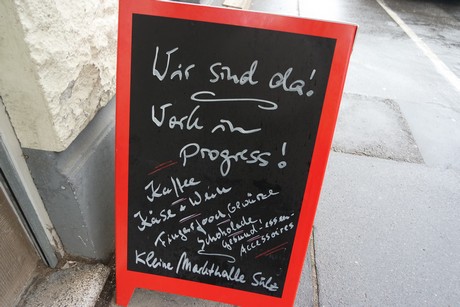 Wir sind da!
Work in
Progress!
Kaffee
Käse & Wein
Fingerfood, Gewürze
Schokolade,
Gesund-essen-
Accessoires
Kleine Markthalle Sülz